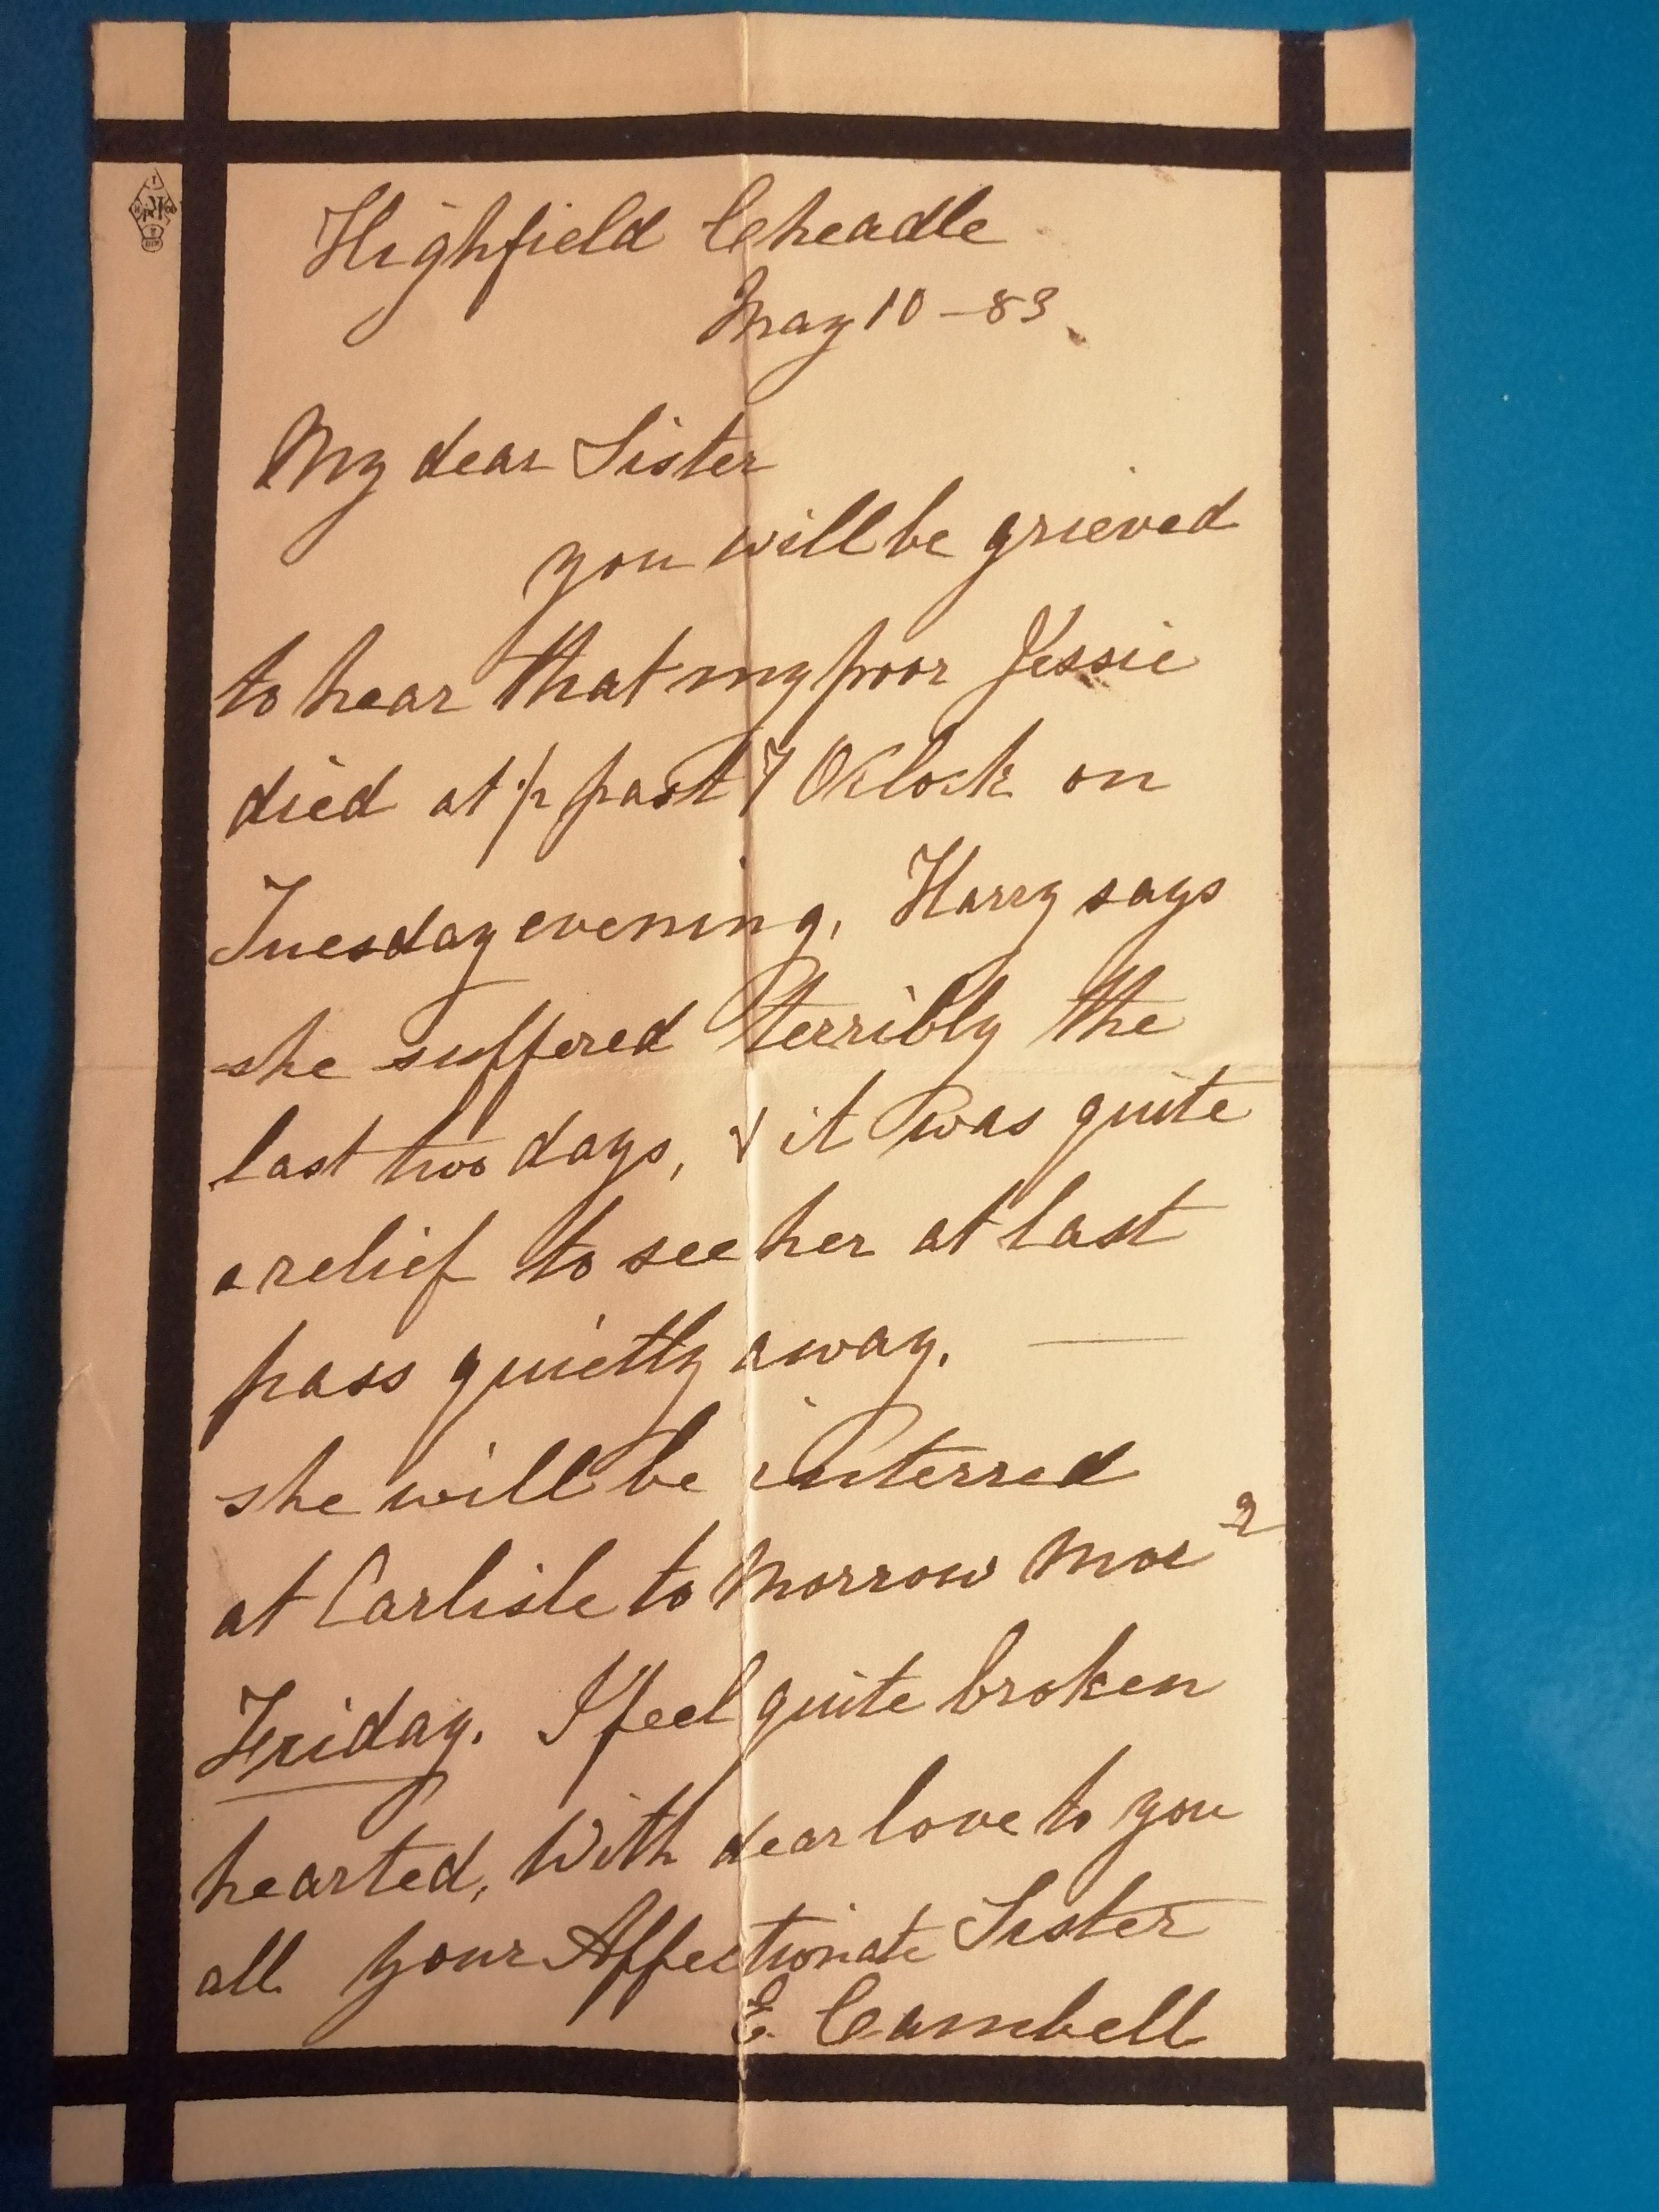 Highfield Cheadle
May 10 - 83
My dear Sister
you will be grieved
to hear that my poor Jessie
died at ½ past 7 OClock on
Tuesday evening, Harry says
she suffered terribly the
last two days, & it was quite
a relief to see her at last
pass quietly away. —
she will be interred
at Carlisle to morrow
Friday. I feel quite broken
hearted, With dear love to you
all your Affectionate Sister
E. Cambell